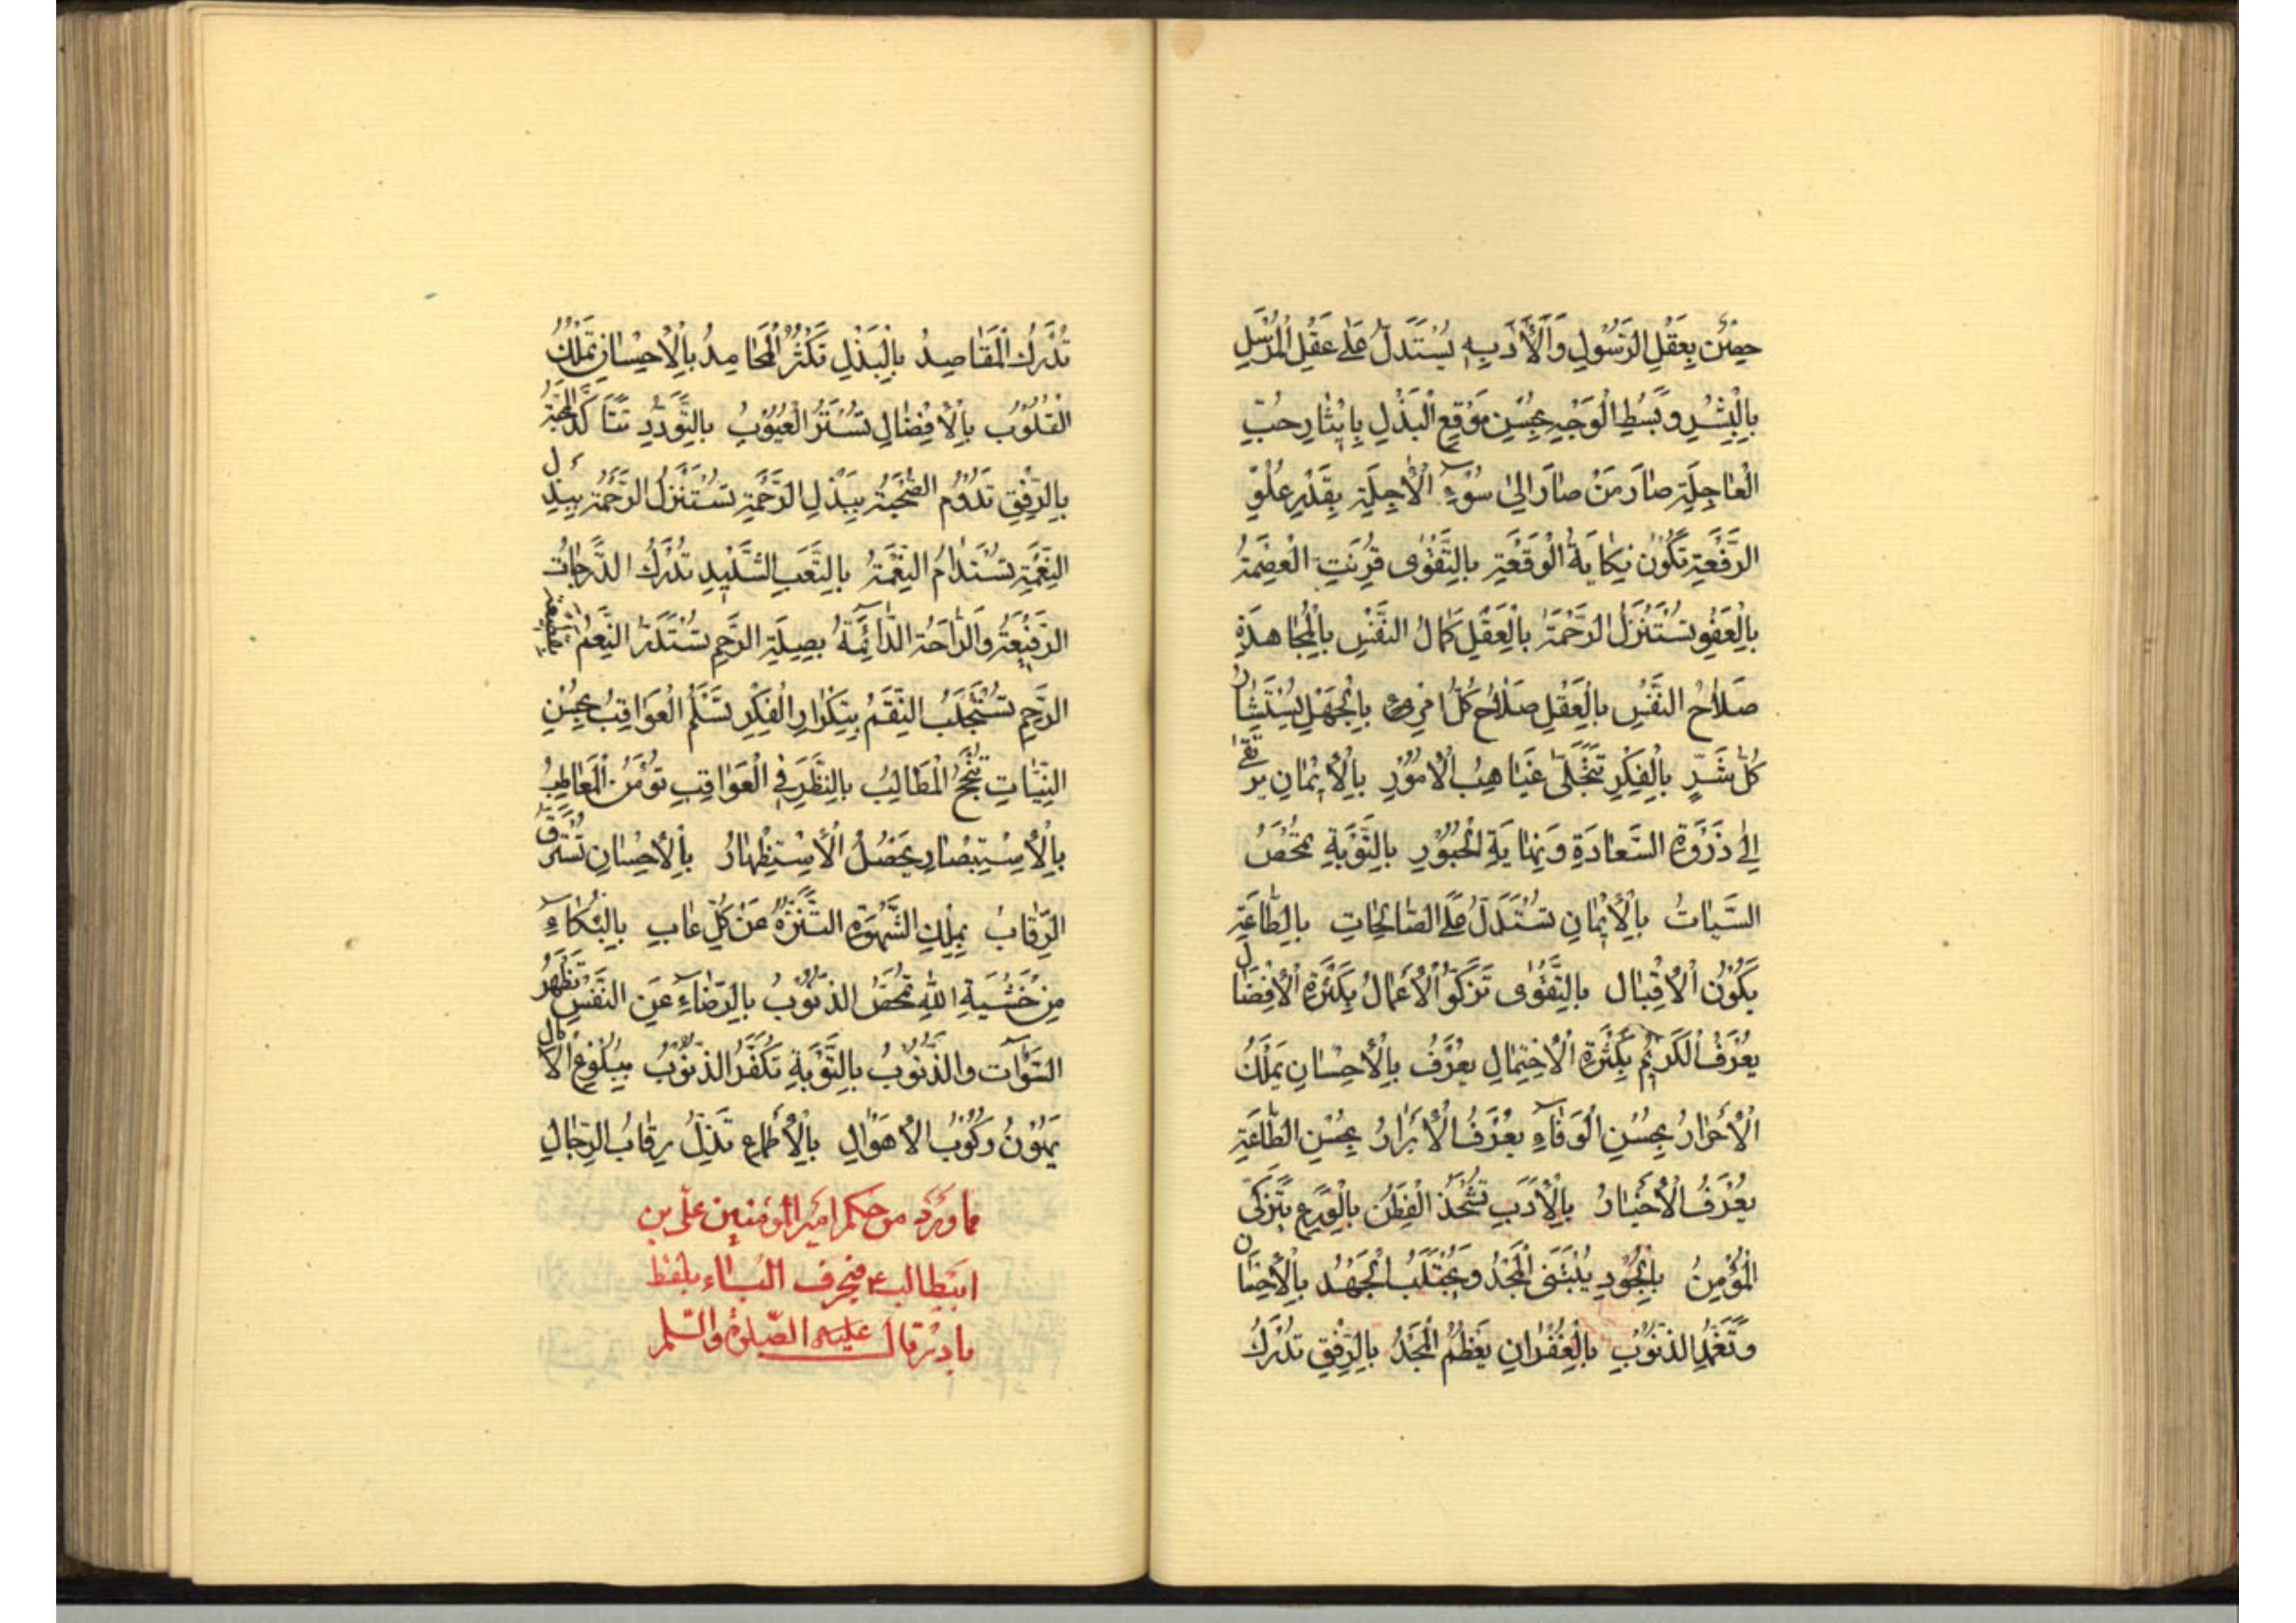 حصين بعقل الرسول والأدبه يستدل على عقل المرسل
بالبشر وبسط الوجه يحسن موقع البذل بايثار حب
العاجلة صار من صار الى سوء الأجلة بقدر علو
الرفعة تكون نكاية الوقعة بالتقوى قرنت العصمة
بالعفو تستنزل الرحمة بالعقل كمال النفس بالمجاهدة
صلاح النفس بالعقل صلاح كل امرئ بالجهل يستثار
كل شر بالفكر تتجلى غياهب الأمور بالأيمان يرتقى
الى ذروة السعادة ونهاية الحبور بالتوبة تمحص
السيات بالأيمان تستدل على الصالحات بالطاعة
يكون الأقبال بالتقوى تزكوا الأعمال بكثرة الأفضال
يعرف الكريم بكثرة الأحتمال يعرف بالأحسان يملك
الأحرار بحسن الوفاء يعرف الأبرار بحسن الطاعة
يعرف الأخيار بالأدب تشحذ الفطن بالورع يتزكى
المؤمن بالجود يبتنى المجد ويجتلب الجهد بالأحسان
وتغمد الذنوب بالغفران يعظم المجد بالرفق تدرك
تدرك المقاصد بالبذل تكثر المحامد بالأحسان تملك
القلوب بالأفضال تستتر العيوب بالتودد تتأكد المحبة
بالرفق تدوم الصحبة ببذل الرحمة تستنزل الرحمة ببذل
النعمة تستدام النعمة بالتعب الشديد تدرك الدرجات
الرفيعة والراحة الدائمة بصلة الرحم تستدر النعم بقطيعة
الرحم تستجلب النقم بتكرار الفكر تسلم العواقب بحسن
النيات تنجح المطالب بالنظر في العواقب تؤمن المعاطب
بالأستبصار يحصل الأستظهار بالأحسان تسترق
الرقاب بملك الشهوة التنزه عن كل عاب بالبكاء
من خشية الله تمحص الذنوب بالرضاء عن النفس تظهر
السوآت والذنوب بالتوبة تكفر الذنوب ببلوغ الآمال
يهون ركوب الأهوال بالأطماع تذل رقاب الرجال
مما ورد من حكم امير المؤمنين على بن
ابيطالب ع في حرف الباء بلفظ
بادر قال عليه الصلوة والسلم